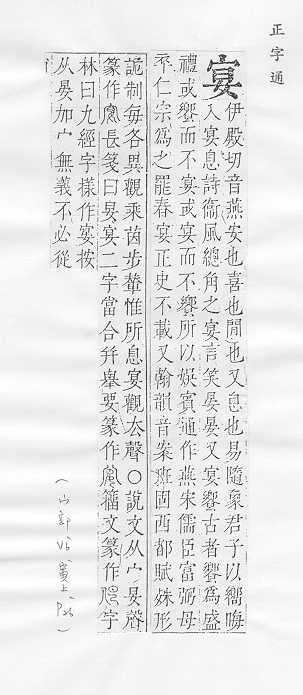 正字通
宴 伊殿切音燕安也喜也閒也又息也易隨象君子以嚮晦
入宴息詩衞風總角之宴言笑晏晏又宴饗古者饗爲盛
禮或饗而不宴或宴而不饗所以娛賓通作燕宋儒臣富弼母
卒仁宗爲之罷春宴正史不載又翰韻音案班固西都賦姝形
詭制每各異觀乘茵步輦惟所息宴觀去聲○說文从宀妟聲
篆作長箋曰妟宴二字當合幷舉要篆作籀文篆作字
林曰九經字樣作宴按
从晏加宀無義不必从